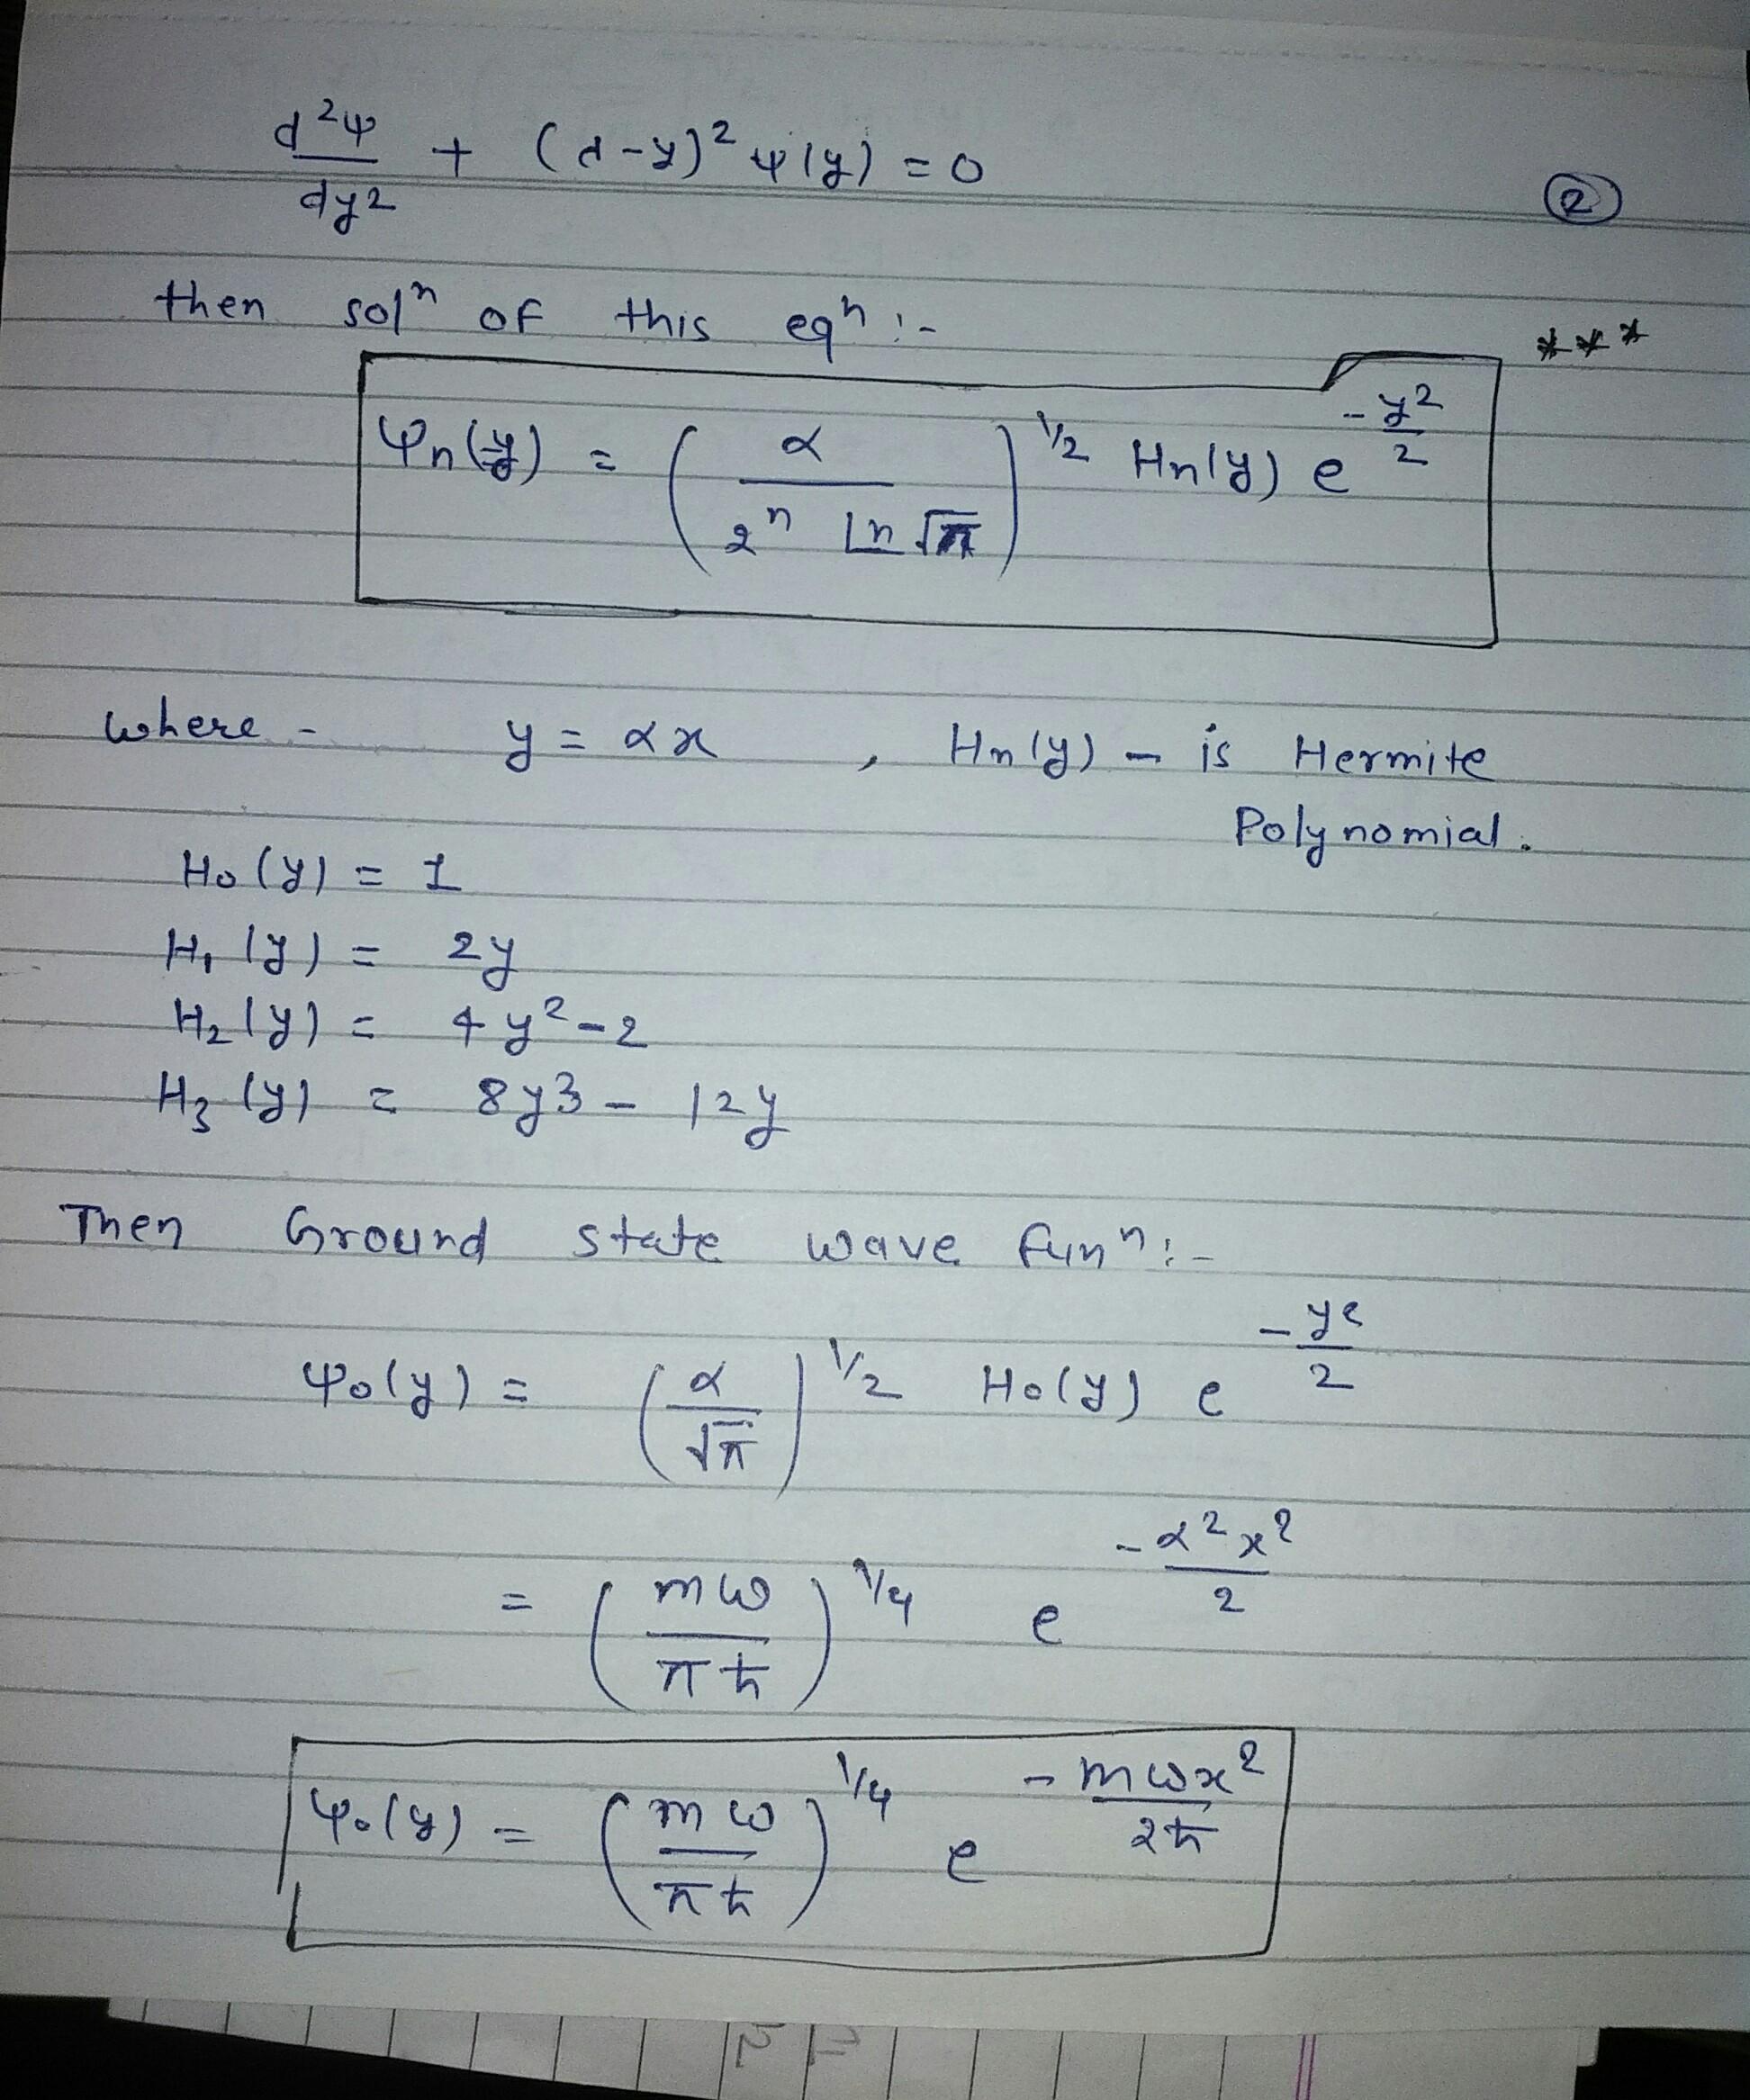 d²ψ/dy² + (λ-y)² ψ(y) = 0
②
then solⁿ of this eqⁿ :-
***
ψn(y) = (α / 2ⁿ ⌊n √π)^1/2 Hn(y) e^-y²/2
where - y = αx , Hn(y) - is Hermite
Polynomial.
H₀(y) = 1
H₁(y) = 2y
H₂(y) = 4y²-2
H₃(y) = 8y3 - 12y
Then Ground state wave funⁿ :-
ψ₀(y) = (α/√π)^1/2 H₀(y) e^-y²/2
= (mω/πħ)^1/4 e^-α²x²/2
ψ₀(y) = (mω/πħ)^1/4 e^-mωx²/2ħ